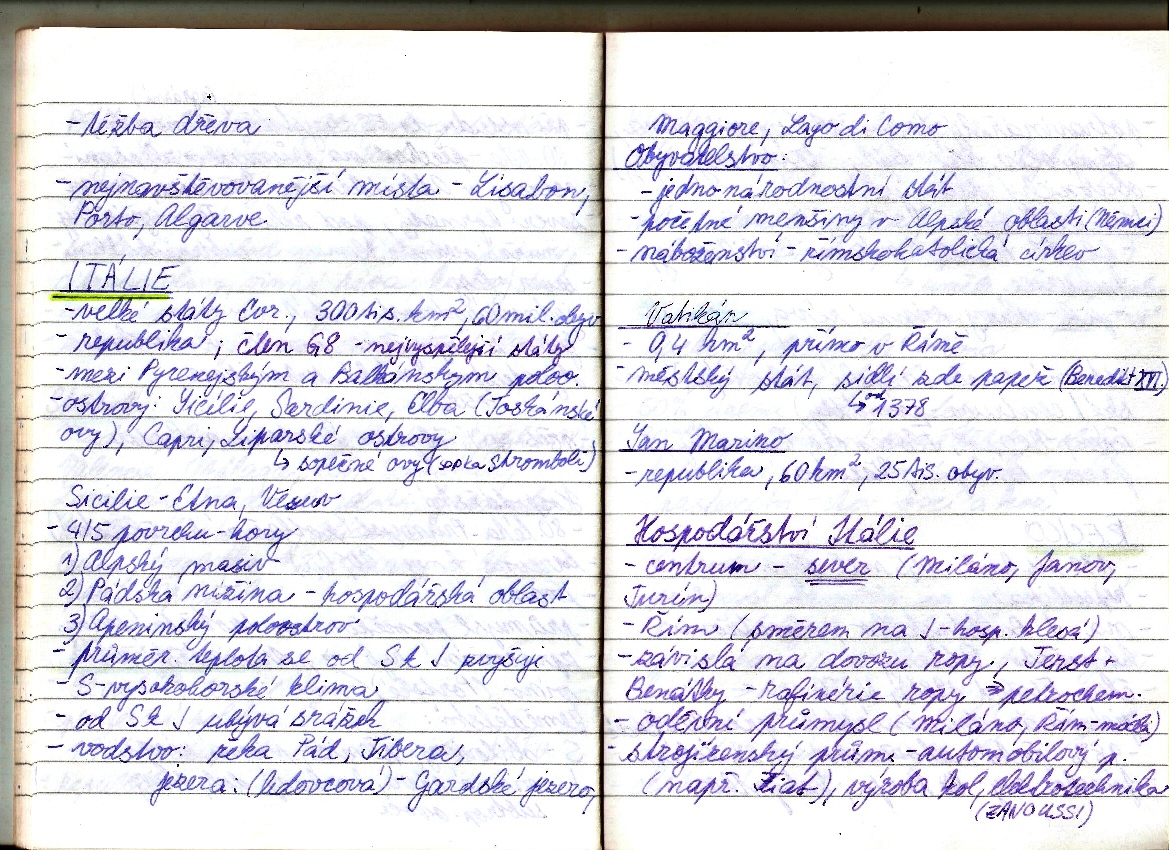 - těžba dřeva
- nejnavštěvovanější místa - Lisabon,
Porto, Algarve
ITÁLIE
- velké státy Evr., 300 tis. km², 60 mil. obyv
- republika, člen G8 - nejvyspělejší státy
- mezi Pyrenejským a Balkánským poloo.
- ostrovy: Sicílie, Sardinie, Elba (Toskánské
ovy), Capri, Liparské ostrovy
↳ sopečné ovy (sopka Stromboli)
Sicilie - Etna, Vesuv
- 4/5 povrchu - hory
1) Alpský masiv
2) Pádská nížina - hospodářská oblast
3) Apeninský poloostrov
- průměr. teplota se od S k J zvyšuje
- S - vysokohorské klima
- od S k J ubývá srážek
- vodstvo: řeka Pád, Tibera,
jezera: (ledovcová) - Gardské jezero,
Maggiore, Lago di Como
Obyvatelstvo:
- jednonárodnostní stát
- početné menšiny v Alpské oblasti (Němci)
- náboženství - římskokatolická církev
Vatikán
- 0,4 km², přímo v Římě
- městský stát, sídlí zde papež (Benedikt XVI.)
↳ od 1378
San Marino
- republika, 60 km², 25 tis. obyv.
Hospodářství Itálie
- centrum - sever (Miláno, Janov,
Turín)
- Řím (směrem na J - hosp. klesá)
- závislá na dovozu ropy, Terst +
Benátky - rafinérie ropy ⇒ petrochem.
- oděvní průmysl (Miláno, Řím - móda)
- strojírenský prům. - automobilový p.
(např. Fiat), výroba kol, elektrotechnika
(ZANUSSI)